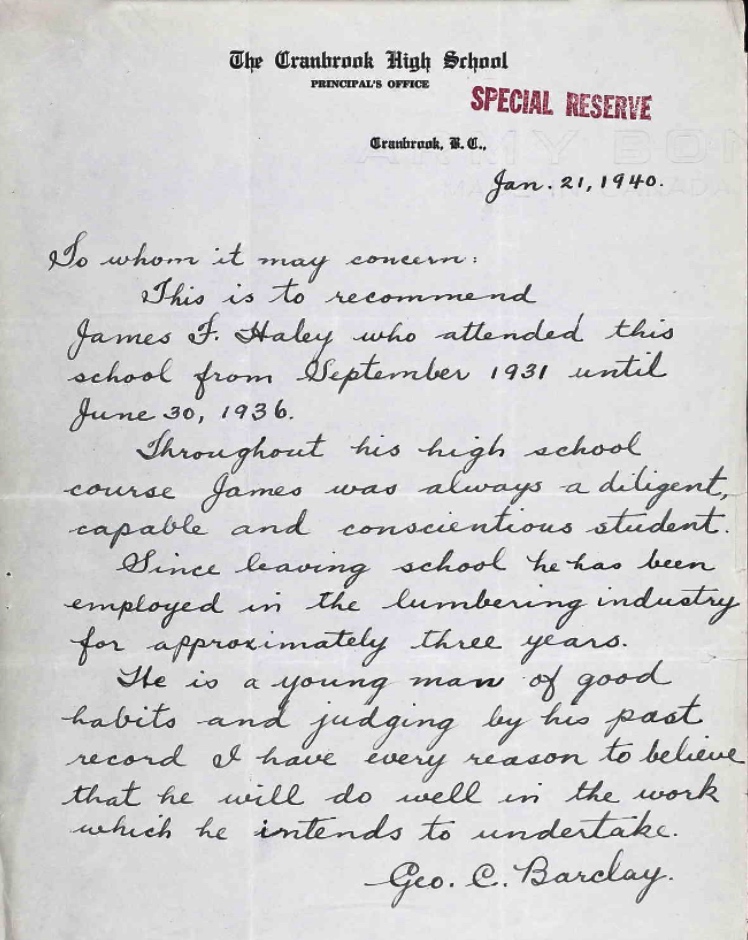 The Cranbrook High School
PRINCIPAL'S OFFICE
SPECIAL RESERVE
Cranbrook, B. C.,
Jan. 21, 1940.
To whom it may concern:
This is to recommend
James F. Haley who attended this
school from September 1931 until
June 30, 1936.
Throughout his high school
course James was always a diligent,
capable and conscientious student.
Since leaving school he has been
employed in the lumbering industry
for approximately three years.
He is a young man of good
habits and judging by his past
record I have every reason to believe
that he will do well in the work
which he intends to undertake.
Geo. C. Barclay.